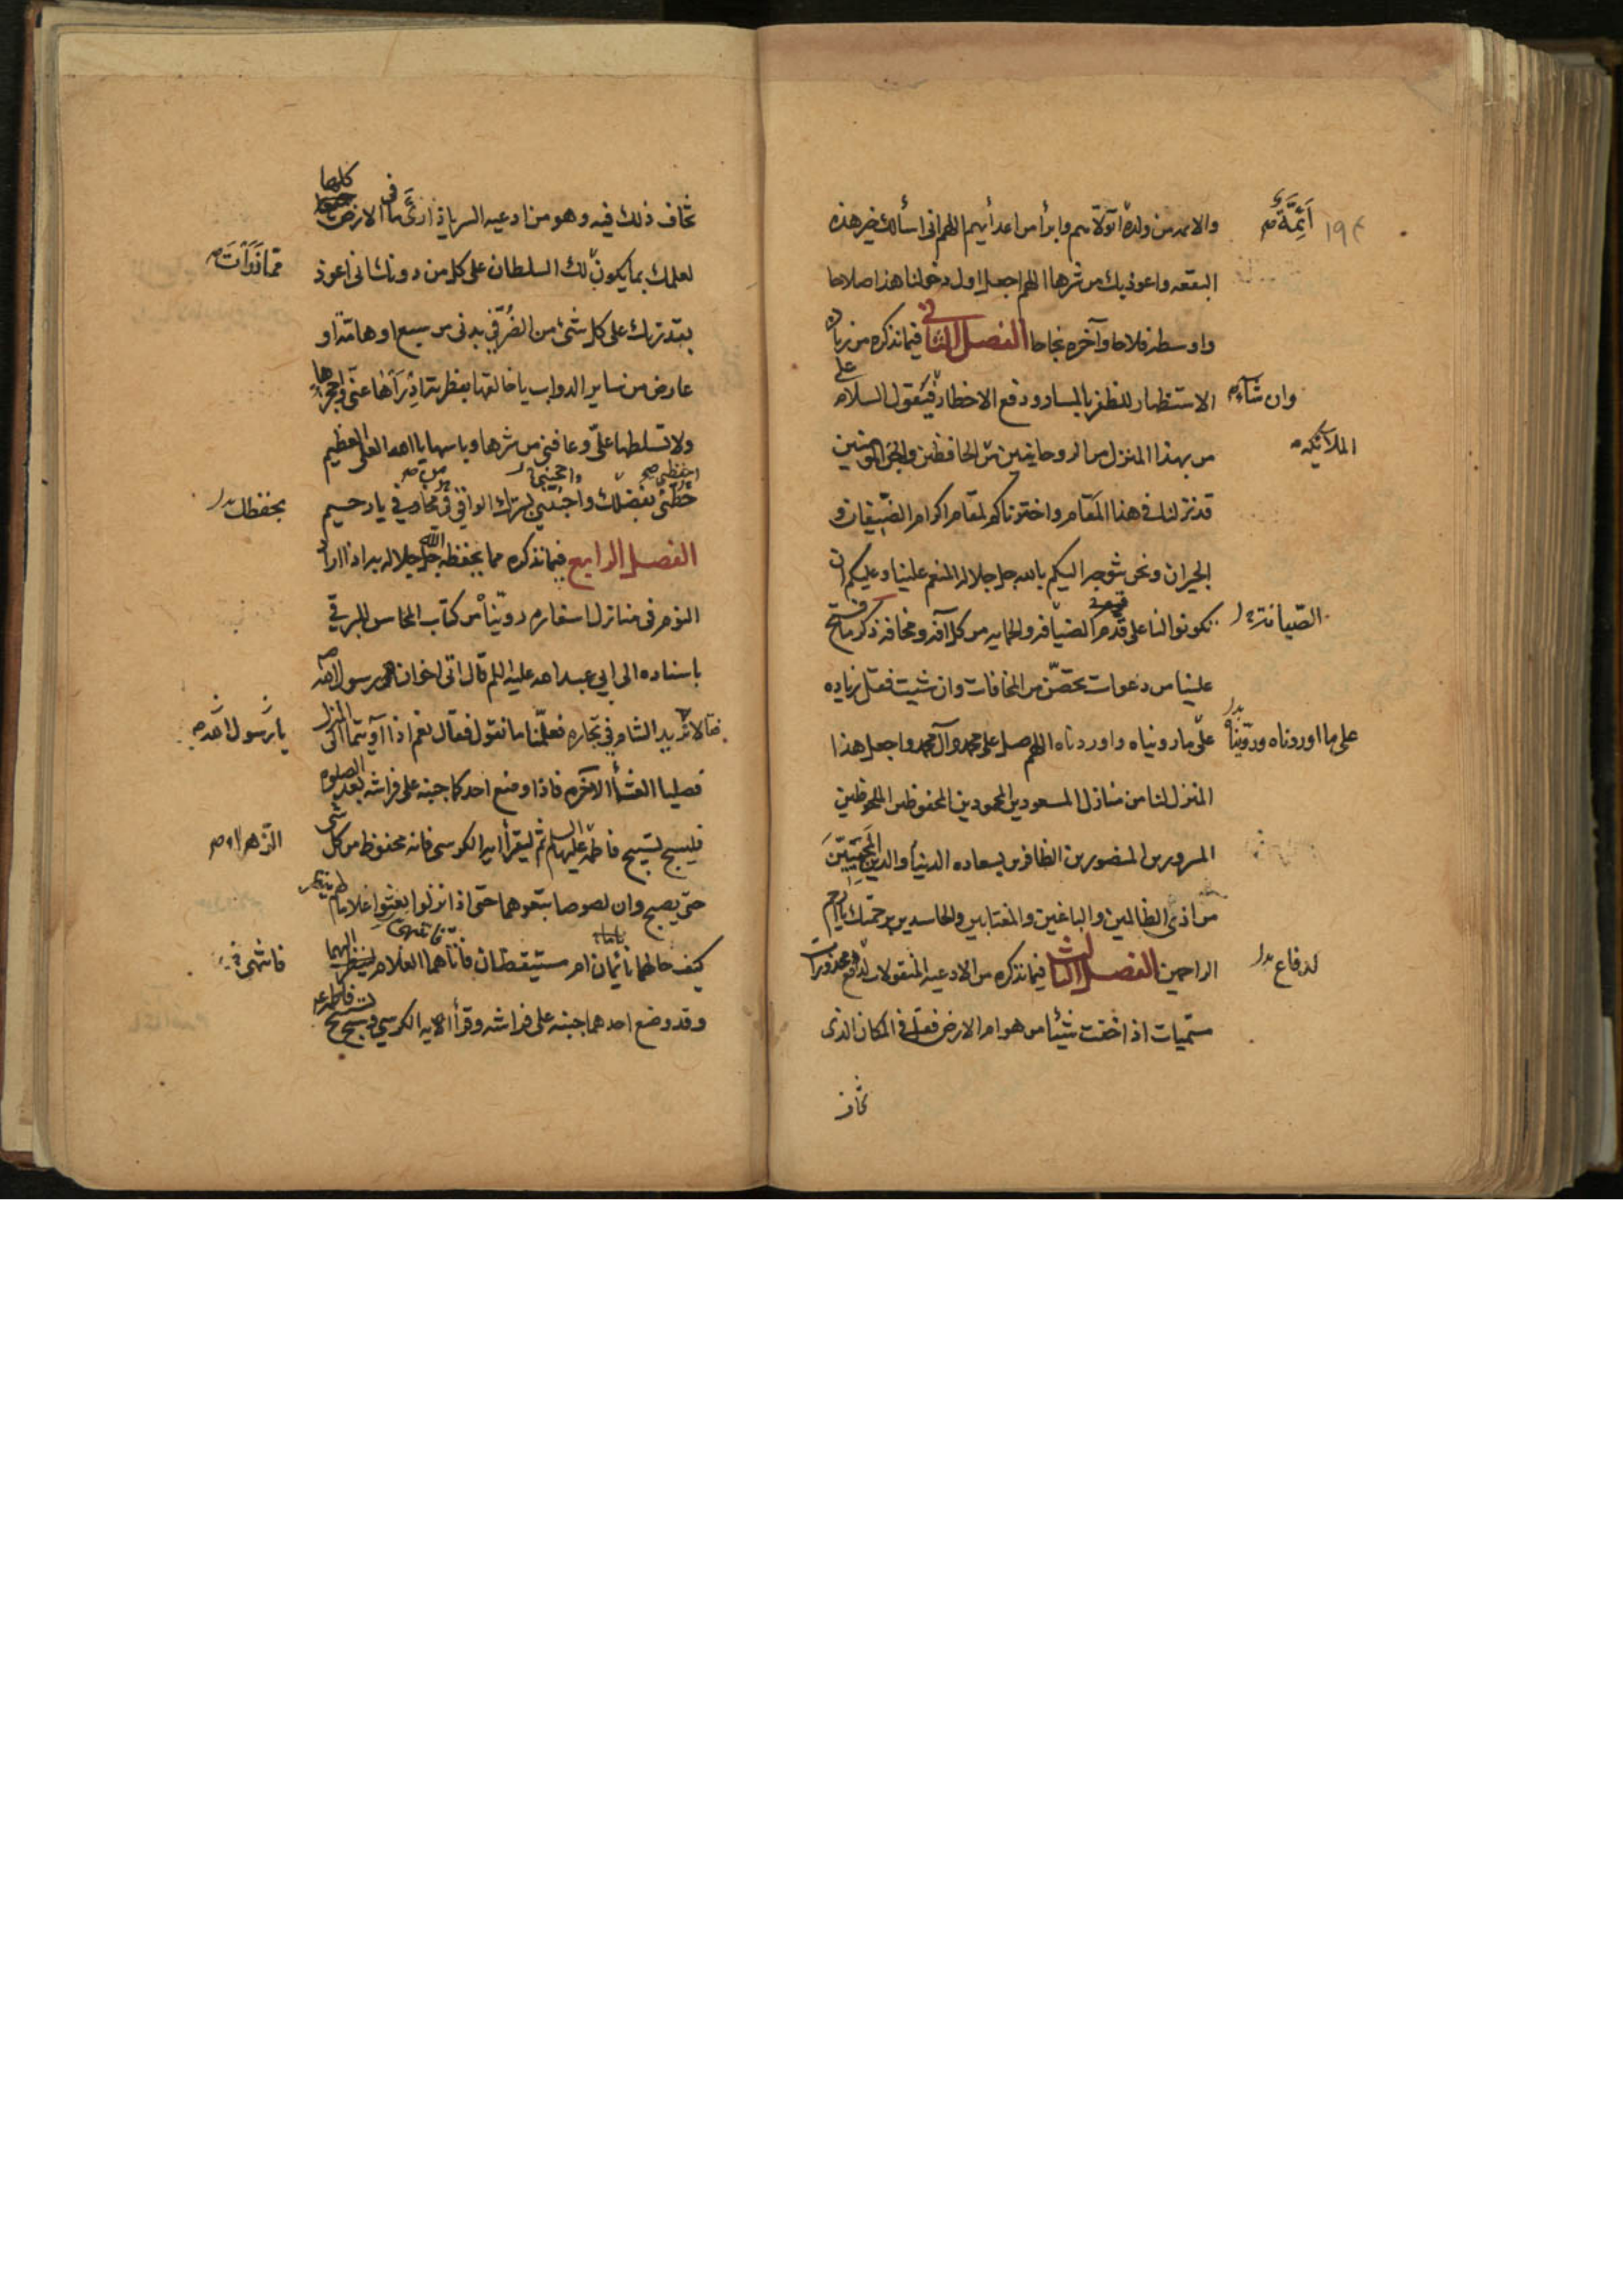 ١٩٢
أَئِمَّةً صح
والائمه من ولده اتولاهم وابرأ من اعدائهم اللهم انى اسألك خير هذه
البقعه واعوذ بك من شرها اللهم اجعل اول دخولنا هذا صلاحا
واوسطه فلاحا وآخره نجاحا الفصل الثانى فيما نذكره من زياده
الاستظهار للظفر بالمسار ودفع الاخطار فيقول السلام على
وان شاء
من بهذا المنزل من الروحانيين من الحافظين والجن المومنين
الملائكه
قد نزلنا فى هذا المقام واخترناكم لمقام اكرام الضيفان و
الجيران ونحن نتوجه اليكم بالله جل جلاله المنعم علينا وعليكم ان
تكونوا لنا على قدم الضيافه والحمايه من كل آفه ومخافه ذكر ما فتح
الصيانة
علينا من دعوات تحصن من المخافات وان شيت فقل زياده
على ما رويناه واوردناه اللهم صل على محمد وآل محمد واجعل هذا
على ما اوردناه وروّيناه بدل
المنزل لنا من منازل المسعودين المحمودين المحفوظين الملحوظين
المسرورين المنصورين الظافرين بسعاده الدنيا والدين المحميين
من اذى الظالمين والباغين والمغتابين والحاسدين برحمتك يا ارحم
الراحمين الفصل الثالث فيما نذكره من الادعيه المنقولات لدفع محذورات
لدفاع بدل
مسميات اذا خفت شيئا من هوام الارض فقل فى المكان الذى
تخاف
تخاف ذلك فيه وهو من ادعيه السر يا ذارئ ما فى الارض كلها
لعلمك بما يكون لك السلطان على كل من دونك انى اعوذ
مما ذَرَأْتَ صح
بقدرتك على كل شئ من الضر فى بدنى من سبع او هامة او
عارض من ساير الدواب يا خالقها بفطرته ادرأها عنى واحجزها
ولا تسلطها على وعافنى من شرها وباسها يا الله العلى العظيم
حطنى بفضلك واجنبنى بسترك الواقى فى مخاوفى يا رحيم
احفظنى صح
بحفظك بدل
الفصل الرابع فيما نذكره مما يحفظه الله جل جلاله به اذا اراد
النوم فى منازل اسفاره روينا من كتاب المحاسن للبرقى
باسناده الى ابى عبد الله عليه السلم قال اتى اخوان رسول الله
فقالا نريد الشام فى تجاره فعلمنا ما نقول فقال نعم اذا آويتما الى المنزل
يا رَسول الله صح
فصليا العشا الآخره فاذا وضع احدكما جنبه على فراشه بعد الصلوه
فليسبح تسبيح فاطمه عليها السلم ثم ليقرأ ايه الكرسى فانه محفوظ من كل شئ
الزهراء صح
حتى يصبح وان لصوصا تبعوهما حتى اذا نزلوا بعثوا غلاما لهم ينظر
كيف حالهما نائمان ام مستيقظان فأتاهما الغلام لينظر اليهما
فانتهى
وقد وضع احدهما جنبه على فراشه وقرأ الايه الكرسى وسبح تسبيح فاطمه